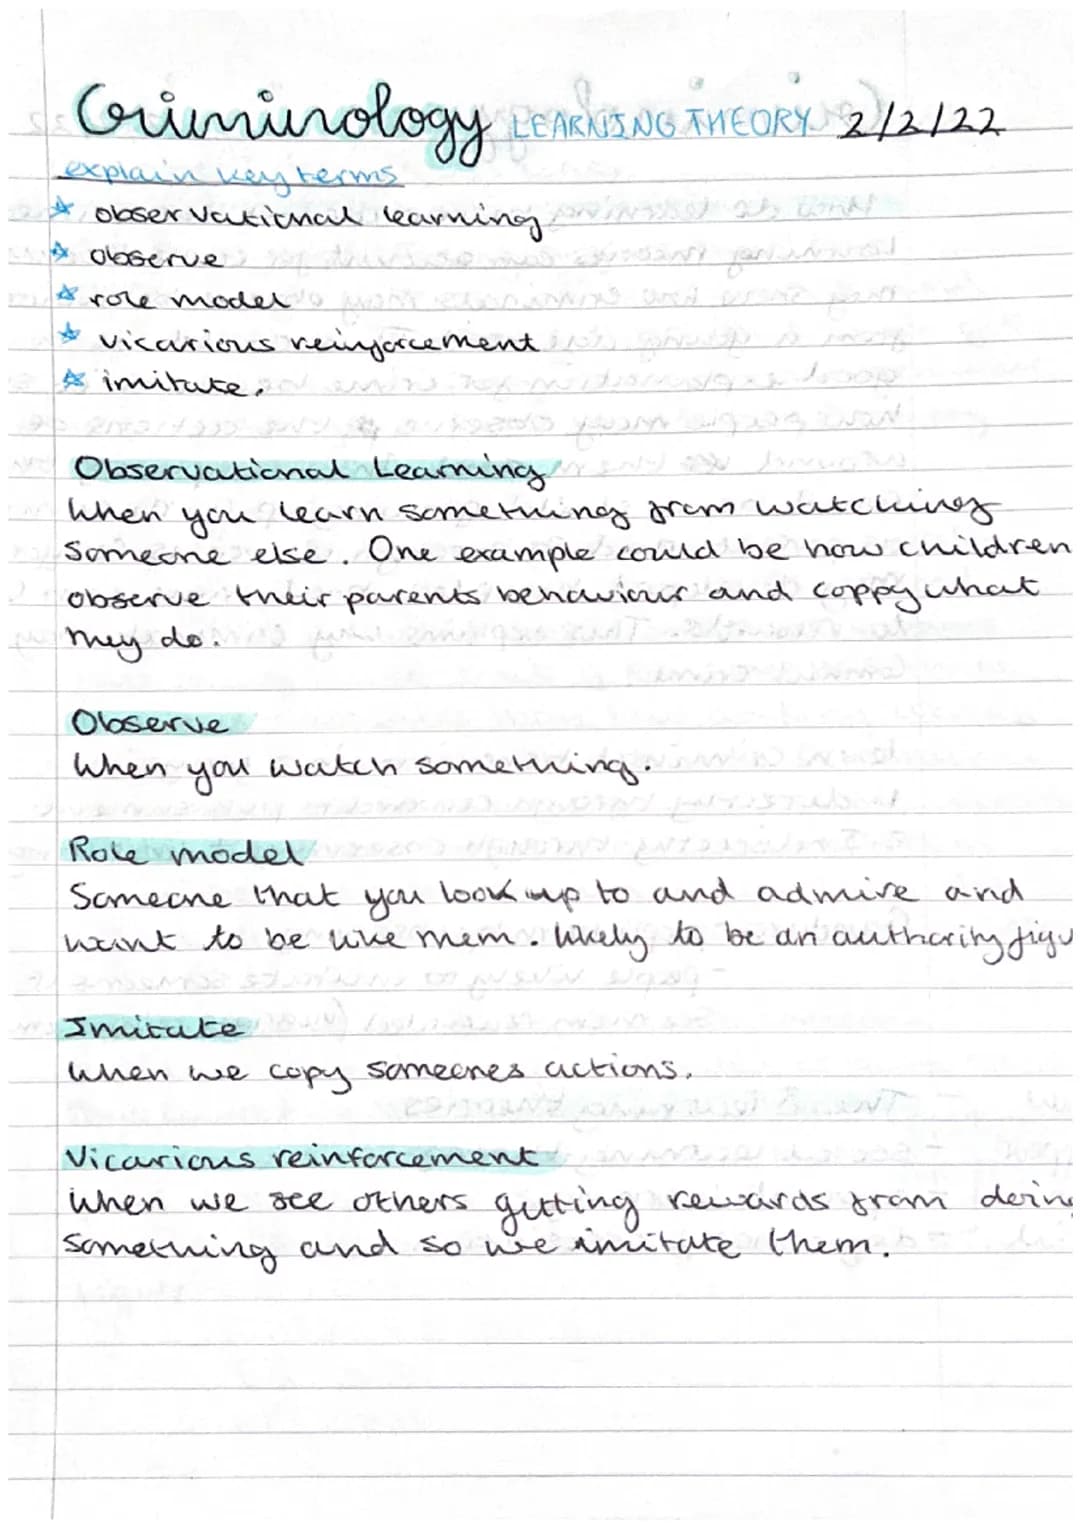 Criminology LEARNING THEORY 2/2/22
explain key terms
observational learning
observe
role model
vicarious reinforcement
imitate.
Observational Learning
When you learn something from watching
someone else. One example could be how children
observe their parents behaviour and coppy what
they do.
Observe
When you watch something.
Role model
Someone that you look up to and admire and
want to be like them. likely to be an authority figu
Imitate
When we copy someones actions.
Vicarious reinforcement
When we see others getting rewards from doing
something and so we imitate them.